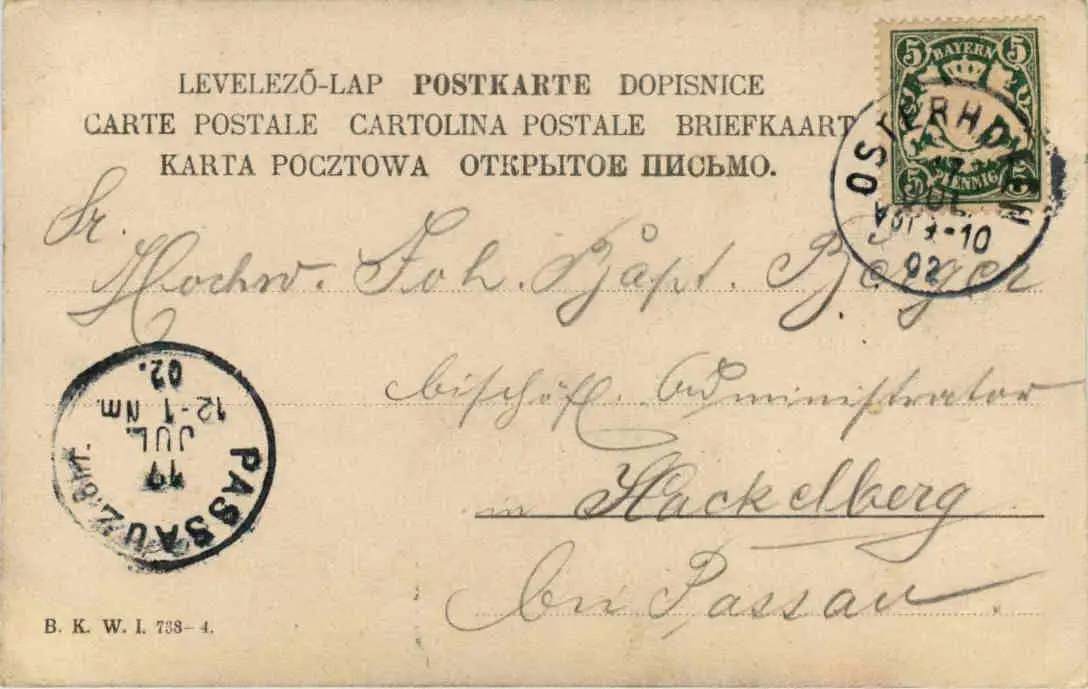 LEVELEZŐ-LAP POSTKARTE DOPISNICE
CARTE POSTALE CARTOLINA POSTALE BRIEFKAART
KARTA POCZTOWA ОТКРЫТОЕ ПИСЬМО.
5 BAYERN 5
5 PFENNIG 5
OSTERHOFEN
17
JUL.
9-10
02
Sr.
Hochw. Joh. Bapt. Berger
bischöfl. Administrator
in Hackelberg
bei Passau.
PASSAU 2.Bhf.
JUL.
12-1 Nm
02.
B. K. W. I. 738-4.